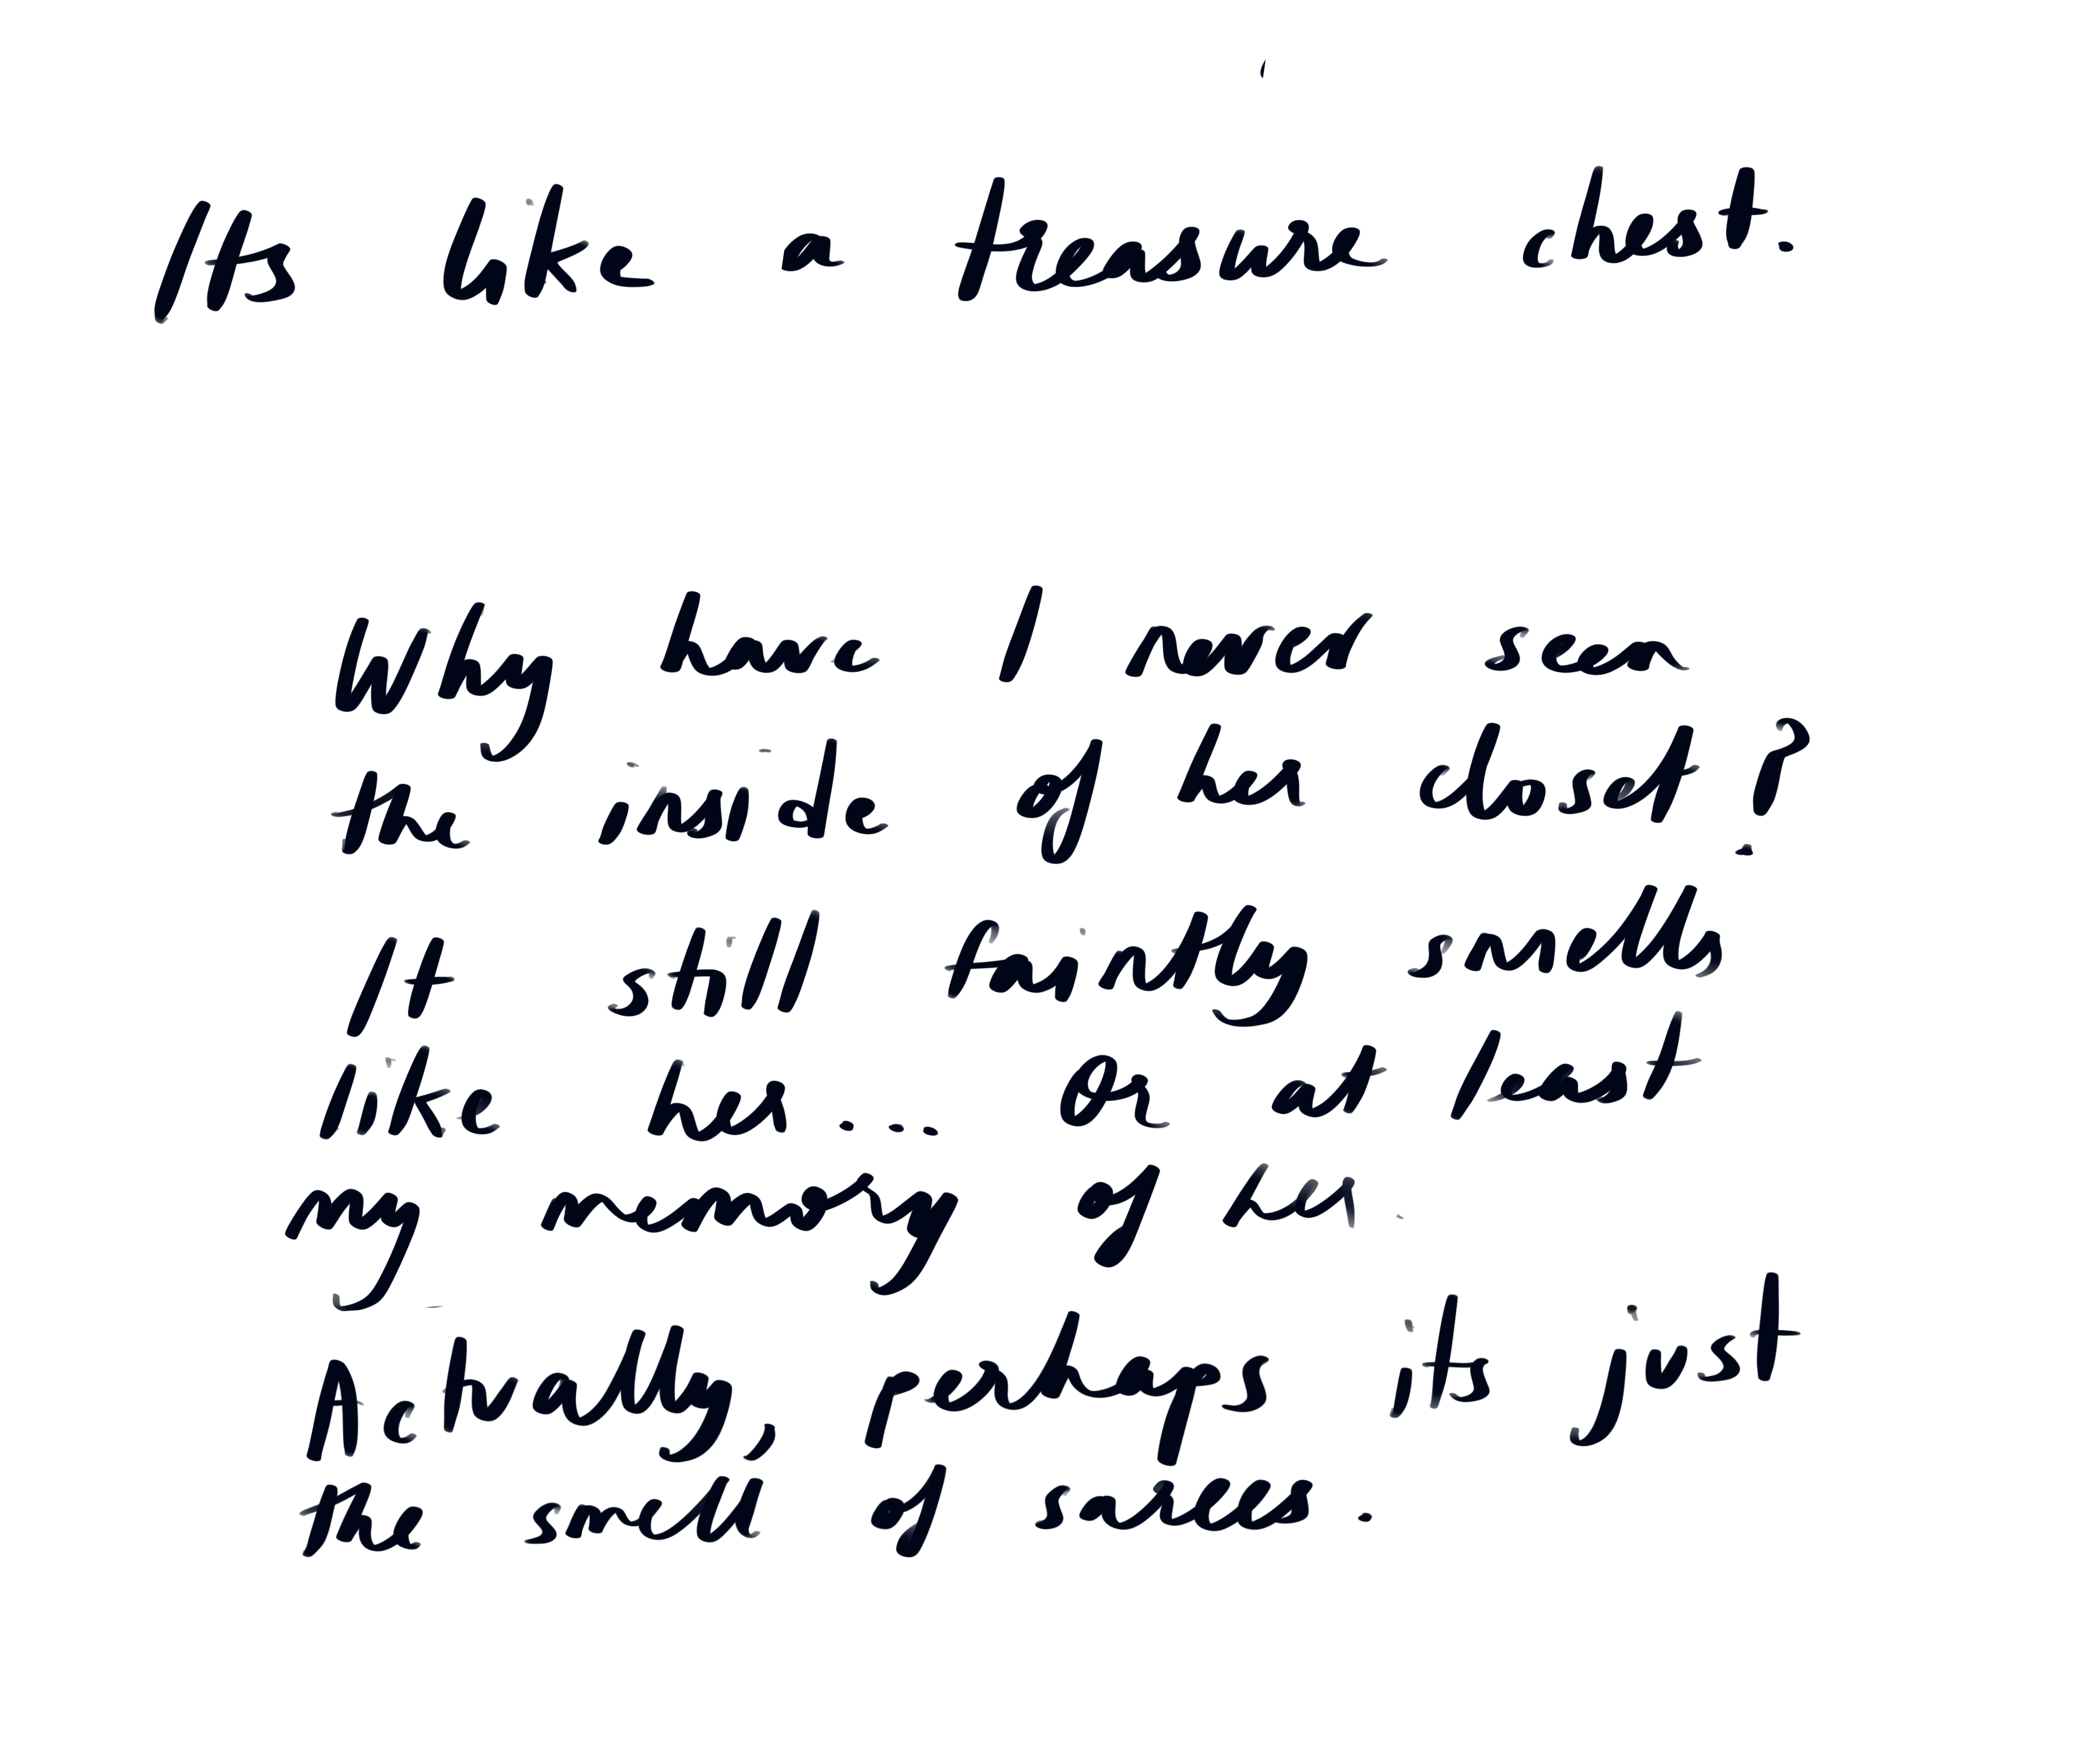 Its like a treasure chest.
Why have I never seen
the inside of her closet?
It still faintly smells
like her... Or at least
my memory of her.
Actually, perhaps its just
the smell of sarees.